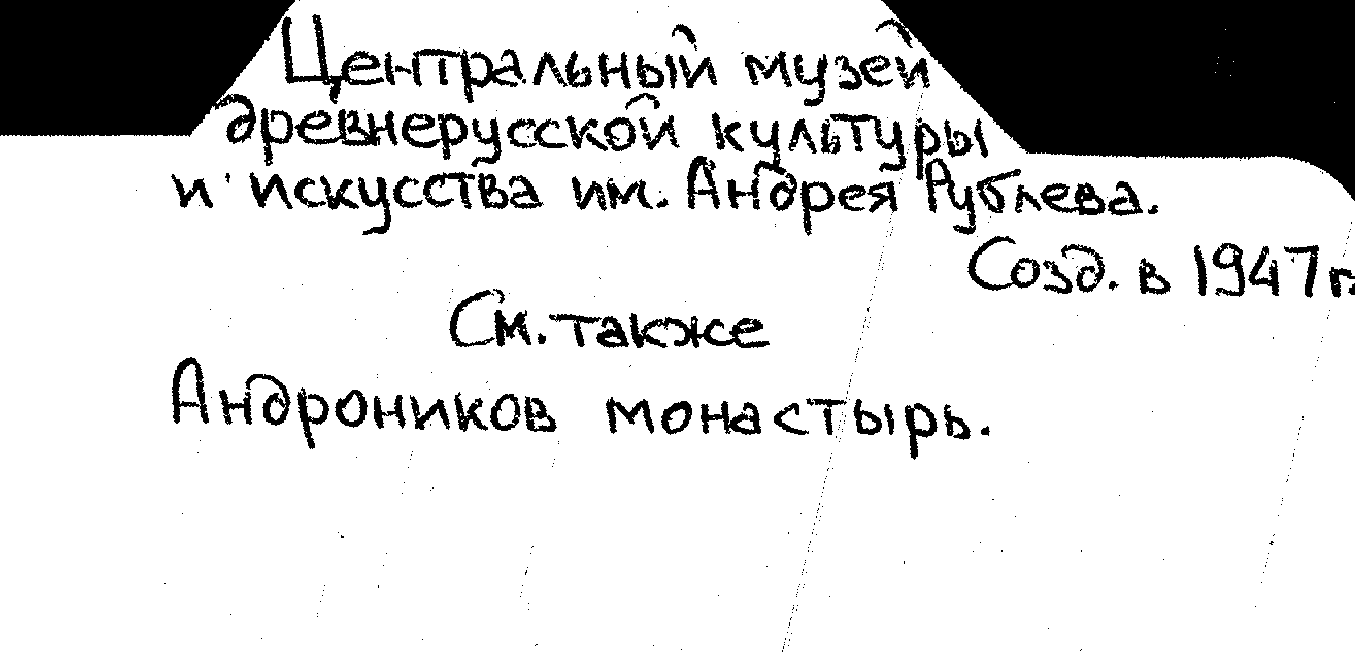 Центральный музей
древнерусской культуры
и искусства им. Андрея Рублева.
Созд. в 1947 г.
См. также
Андроников монастырь.